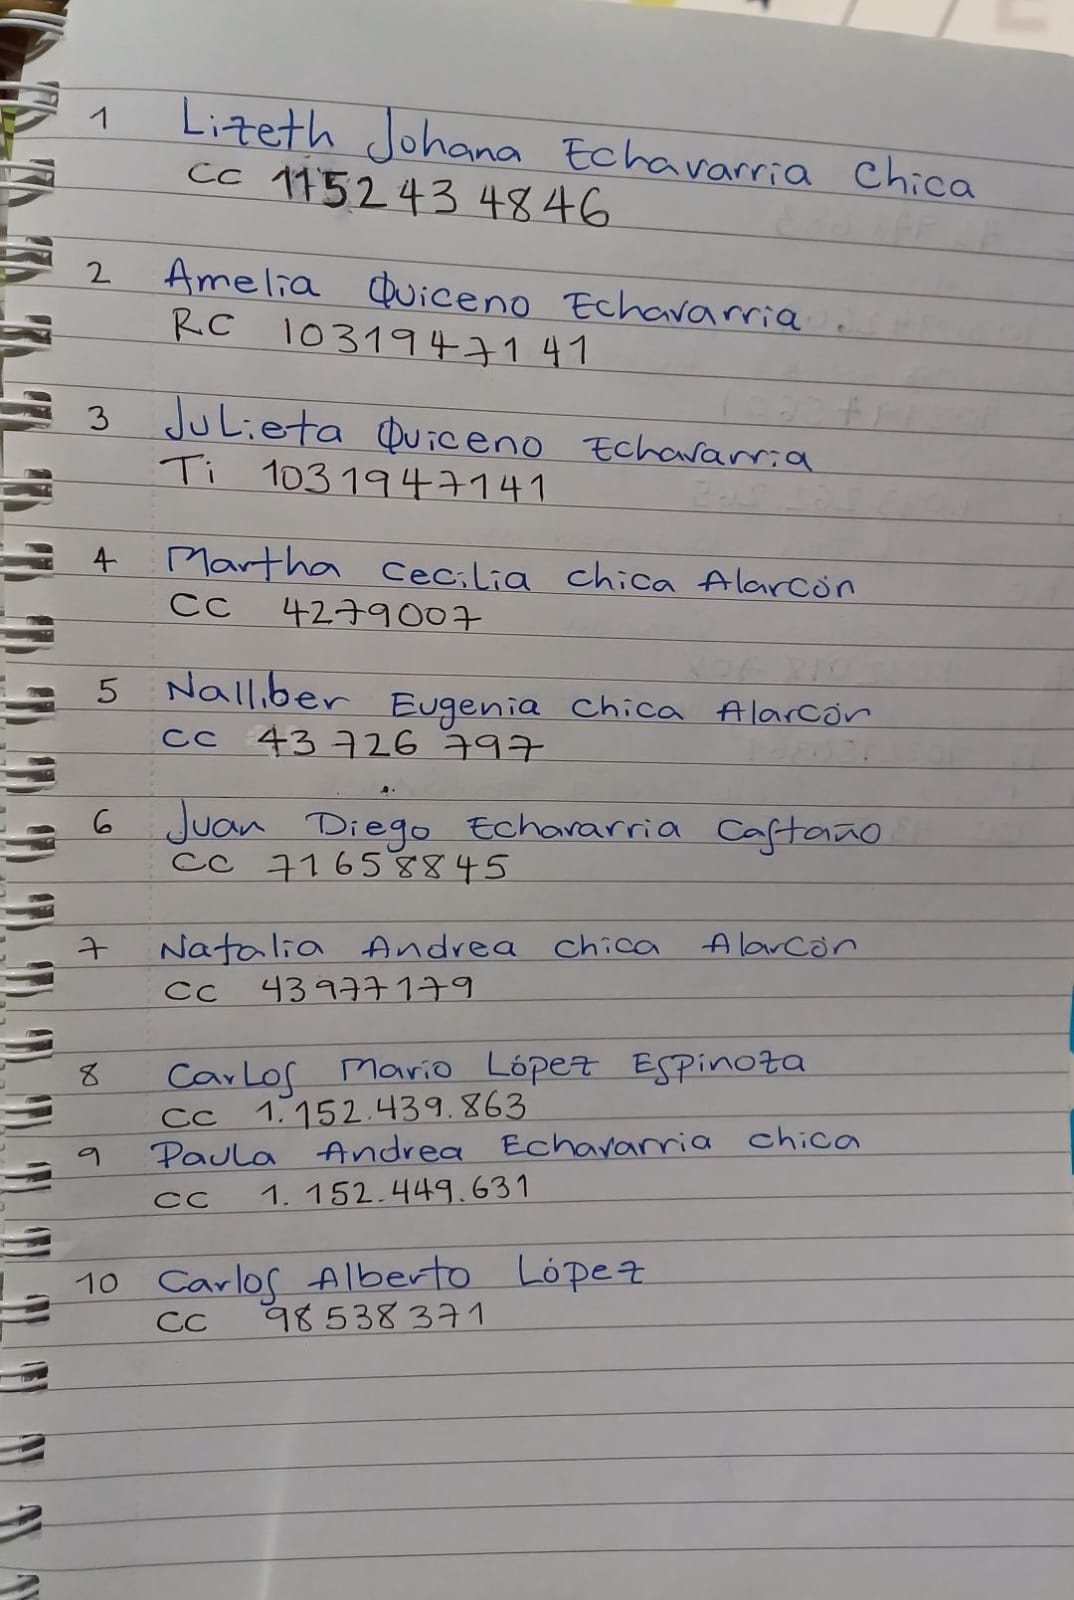 1 Lizeth Johana Echavarria Chica
CC 1152 43 4846
2 Amelia Quiceno Echavarria.
RC 1031947141
3 Julieta Quiceno Echavarria
Ti 1031947141
4 Martha Cecilia Chica Alarcón
CC 4279007
5 Nalliber Eugenia Chica Alarcón
CC 43 726 797
6 Juan Diego Echavarria Castaño
CC 71658845
7 Natalia Andrea Chica Alarcón
CC 43977179
8 Carlos Mario López Espinoza
CC 1.152.439.863
9 Paula Andrea Echavarria Chica
CC 1.152.449.631
10 Carlos Alberto López
CC 98538371